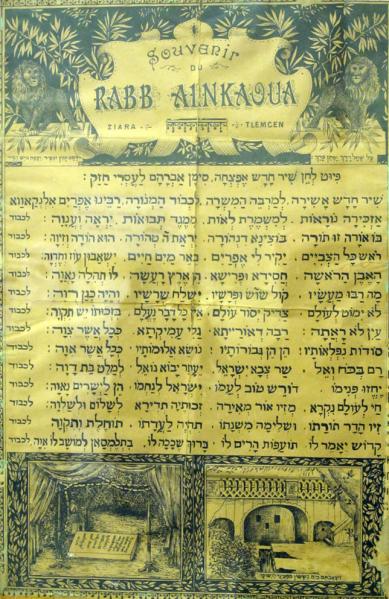 Souvenir
DU
RABB AINKAOUA
ZIARA
TLEMCEN
פיוט לחן שיר חדש אפצחה, סימן אברהם לעסרי חזק:
שיר חדש אשירה, למרבה המשרה, לכבוד המנורה, רבינו אפרים אלנקאווא
אזכירה נוראות, למשמרת לאות, ממגד תבואות, יראה וענוה: לכבוד
בו אורה זו תורה, בוצינא דנהורה, יראת ה׳ טהורה, הוא הודה וזיוה: לכבוד
ראש כל הצביים, יקיר לי אפרים, באר מים חיים, ישאבון עוז וחדוה: לכבוד
האבן הראשה, חסידא ופרישא, הארץ רעשה, לו תהלה נאוה: לכבוד
מה רבו מעשיו, קול שוש ופרשיו, ישלח שרשיו, והיה כגן רוה: לכבוד
לא ימוט לעולם, צדיק יסוד עולם, אין כל דבר נעלם, בזכותו יש תקוה: לכבוד
עין לא ראתה, רבה דאורייתא, גלי עמיקתא, ככל אשר צוה: לכבוד
סודות נפלאותיו, הן הן גבורותיו, נושא אלומותיו, ככל אשר אוה: לכבוד
רם בכח ואל, שר צבא ישראל, יעזור יבוא גואל, למלט בת דוה: לכבוד
יחזו פנימו, דורש טוב לעמו, ישראל לנחמו, הן לישרים נאוה: לכבוד
חי לעולם נקרא, מזיו אור מאירה, זכותיה תדירא, לשלום ולשלוה: לכבוד
זיו הדר תורתו, ושלימה משנתו, תהיה לעדתו, תוחלת ותקוה: לכבוד
קדוש יאמר לו, תועפות הרים לו, ברוך שככה לו, בתלמסאן למושב לו אוה, לכבוד